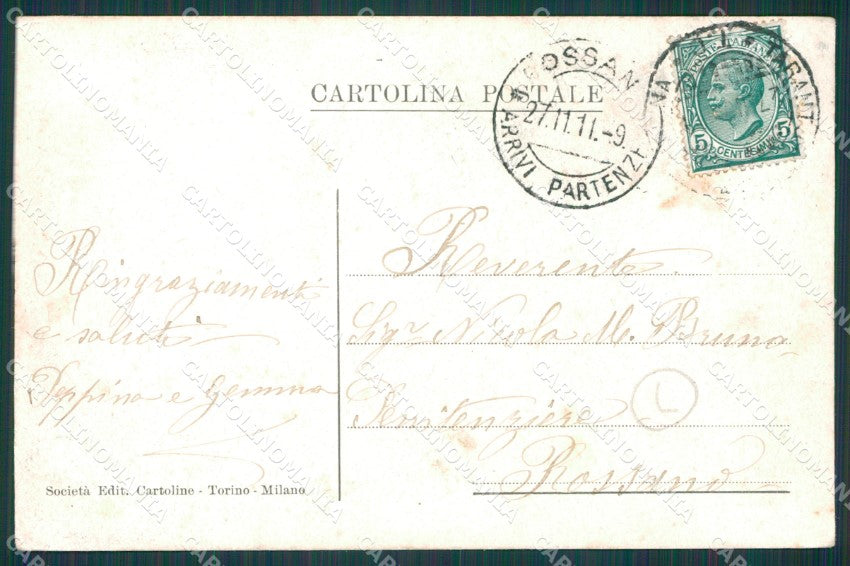 CARTOLINA POSTALE
ROSSAN
27.11.11.-9
ARRIVI PARTENZE
TARANT
POSTE ITALIANE
5 CENTESIMI 5
Ringraziamenti
e saluti
Peppina e Gemma
Reverente
Sigr Nicola M. Bruna
Penitenziere
Rossano
L
Società Edit. Cartoline - Torino - Milano
CARTOLINOMANIA